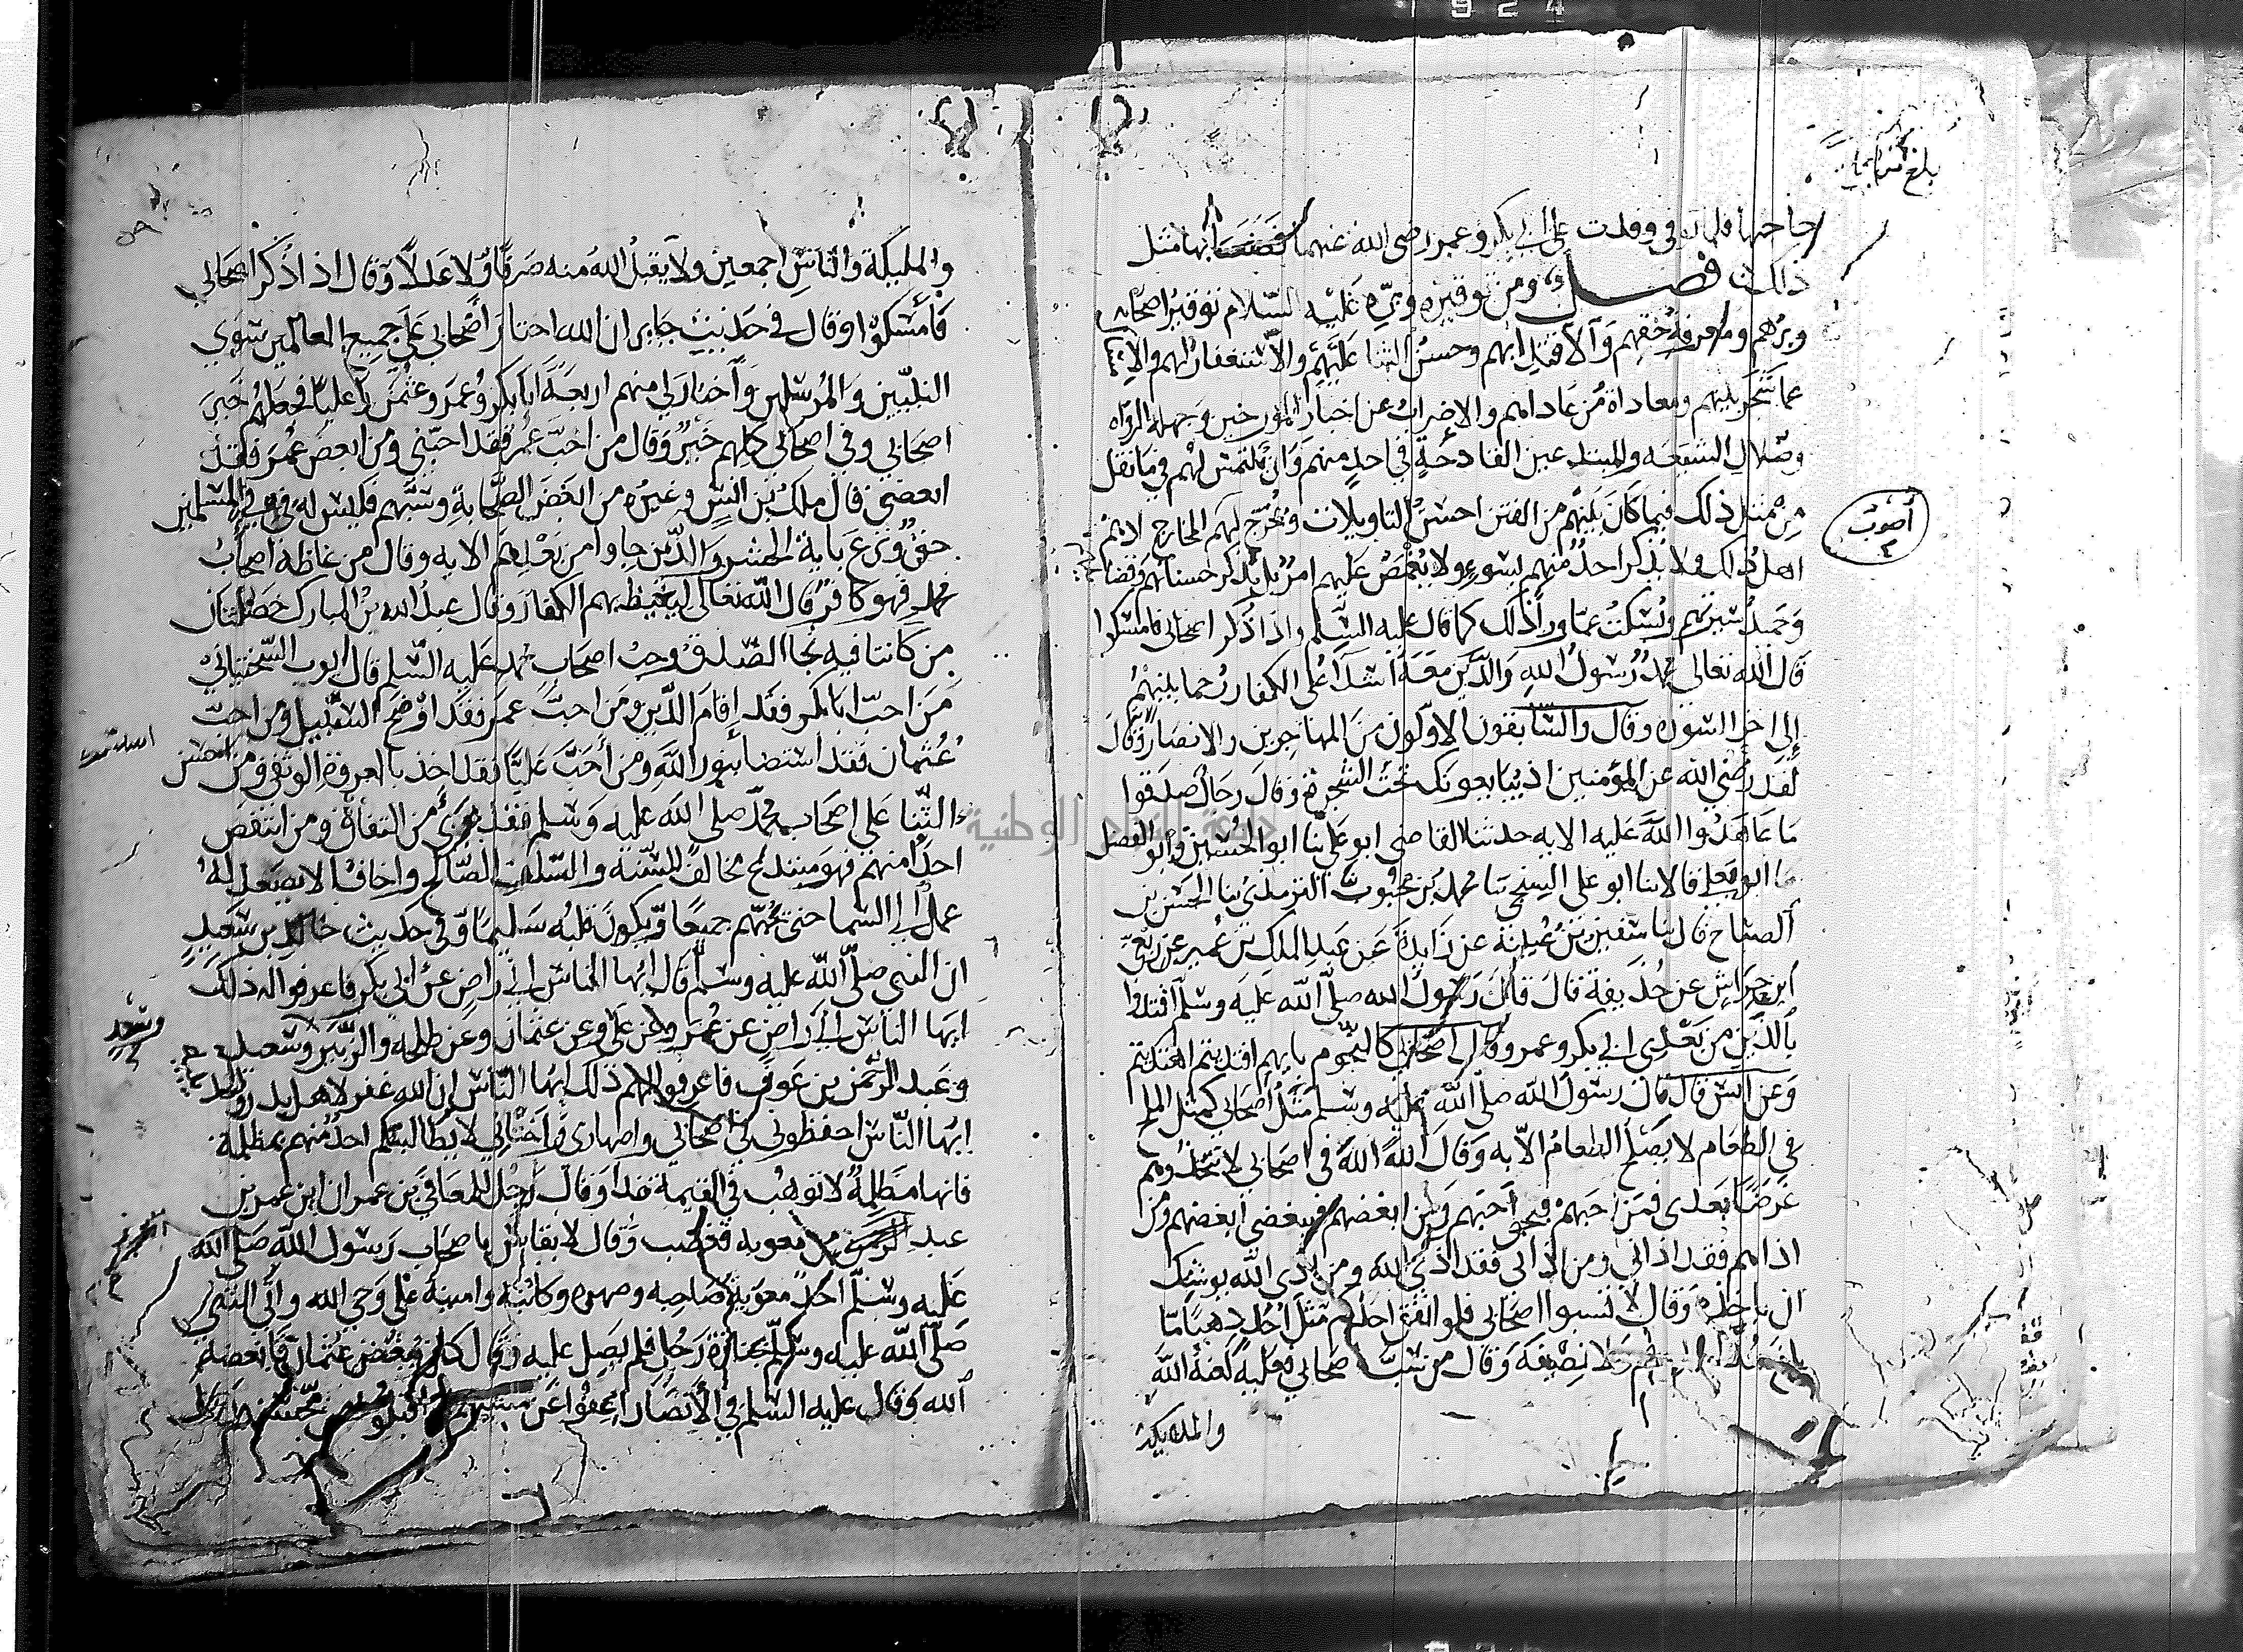 حاجتها فلما توفي وفدت على ابي بكر وعمر رضى الله عنهما فصنعا بها مثل
ذلك فصل ومن توقيره وبره عليه السلام توقير اصحابه
وبرهم ومعرفة حقهم والاقتدا بهم وحسن الثنا عليهم والاستغفار لهم والامساك
عما شجر بينهم ومعاداة من عاداهم والاضراب عن اخبار المؤرخين وجهلة الرواه
وضلال الشيعه والمبتدعين القادحة في احد منهم وان يلتمس لهم في ما نقل
من مثل ذلك فيما كان بينهم من الفتن احسن التاويلات ويخرج لهم المخارج اذ هم
اهل ذلك ولا يذكر احد منهم بسوء ولا يغمص عليهم امر بل يذكر حسناتهم وفضائلهم
وحميد سيرتهم ويسكت عما ورا ذلك كما قال عليه السلم واذا ذكر اصحابى فامسكوا
قال الله تعالى محمد رسول الله والذين معه اشدا على الكفار رحما بينهم
إلى اخر السوره وقال والسابقون الاولون من المهاجرين والانصار وقال
لقد رضي الله عن المؤمنين اذ يبايعونك تحت الشجرة وقال رجال صدقوا
ما عاهدوا الله عليه الايه حدثنا القاضى ابو علي نا ابو الحسين وابو الفضل
نا ابو يعلى قالا نا ابو على السنجي نا محمد بن محبوب الترمذي نا الحسن بن
الصباح قال نا سفين بن عيينة عن زايدة عن عبد الملك بن عمير عن ربعي
ابن حراش عن حذيفة قال قال رسول الله صلى الله عليه وسلم اقتدوا
بالذين من بعدى ابي بكر وعمر وقال اصحابي كالنجوم بايهم اقتديتم اهتديتم
وعن انس قال قال رسول الله صلى الله عليه وسلم مثل اصحابي كمثل الملح
في الطعام لا يصلح الطعام الا به وقال الله الله في اصحابي لا تتخذوهم
غرضا بعدى فمن احبهم فبحبي احبهم ومن ابغضهم فببغضى ابغضهم ومن
اذاهم فقد اذاني ومن اذاني فقد اذى الله ومن اذى الله يوشك
ان ياخذه وقال لا تسبوا اصحابى فلو انفق احدكم مثل احد ذهبا ما
بلغ مد احدهم ولا نصيفه وقال من سب اصحابي فعليه لعنة الله
والمليكة
بلغ
أصوب
والمليكة والناس اجمعين ولا يقبل الله منه صرفا ولا عدلا وقال اذا ذكر اصحابي
فأمسكوا وقال في حديث جابر ان الله اختار أصحابي على جميع العالمين سوى
النبيين والمرسلين وأختار لي منهم اربعة ابا بكر وعمر وعثمن وعليا فجعلهم خير
اصحابي وفي اصحابي كلهم خير وقال من احب عمر فقد احبني ومن ابغض عمر فقد
ابغضني قال ملك بن انس وغيره من ابغض الصحابة وسبهم فليس له في فيء المسلمين
حق ونزع باية الحشر والذين جاوا من بعدهم الايه وقال من غاظه اصحاب
محمد فهو كافر قال الله تعالى ليغيظ بهم الكفار وقال عبد الله بن المبارك خصلتان
من كانتا فيه نجا الصدق وحب اصحاب محمد عليه السلم قال ايوب السختياني
من احب ابا بكر فقد اقام الدين ومن احب عمر فقد اوضح السبيل ومن احب
عثمان فقد استضا بنور الله ومن أحب عليا فقد اخذ بالعروة الوثقى ومن احسن
الثنا على اصحاب محمد صلى الله عليه وسلم فقد برئ من النفاق ومن انتقص
احدا منهم فهو مبتدع مخالف للسنة والسلف الصالح واخاف ان لا يصعد له
عمل الى السما حتى يحبهم جميعا ويكون قلبه سليما وفي حديث خالد بن سعيد
ان النبي صلى الله عليه وسلم قال ايها الناس اني راض عن ابي بكر فاعرفوا له ذلك
ايها الناس اني راض عن عمر وعن علي وعن عثمان وعن طلحه والزبير وسعيد
وعبد الرحمن بن عوف فاعرفوا لهم ذلك ايها الناس ان الله غفر لاهل بدر والحديبية
ايها الناس احفظوني في اصحابي واصهارى وأختاني لا يطالبنكم احد منهم بمظلمة
فانها مظلمة لا توهب في القيمة غدا وقال رجل للمعافي بن عمران اين عمر بن
عبد العزيز من معويه فغضب وقال لا يقاس باصحاب رسول الله صلى الله
عليه وسلم احد معوية صاحبه وصهره وكاتبه وامينه على وحي الله وأتي النبي
صلى الله عليه وسلم بجنازة رجل فلم يصل عليه وقال كان يبغض عثمان فأبغضه
الله وقال عليه السلم في الأنصار اعفوا عن مسيهم واقبلوا من محسنهم
وسعد